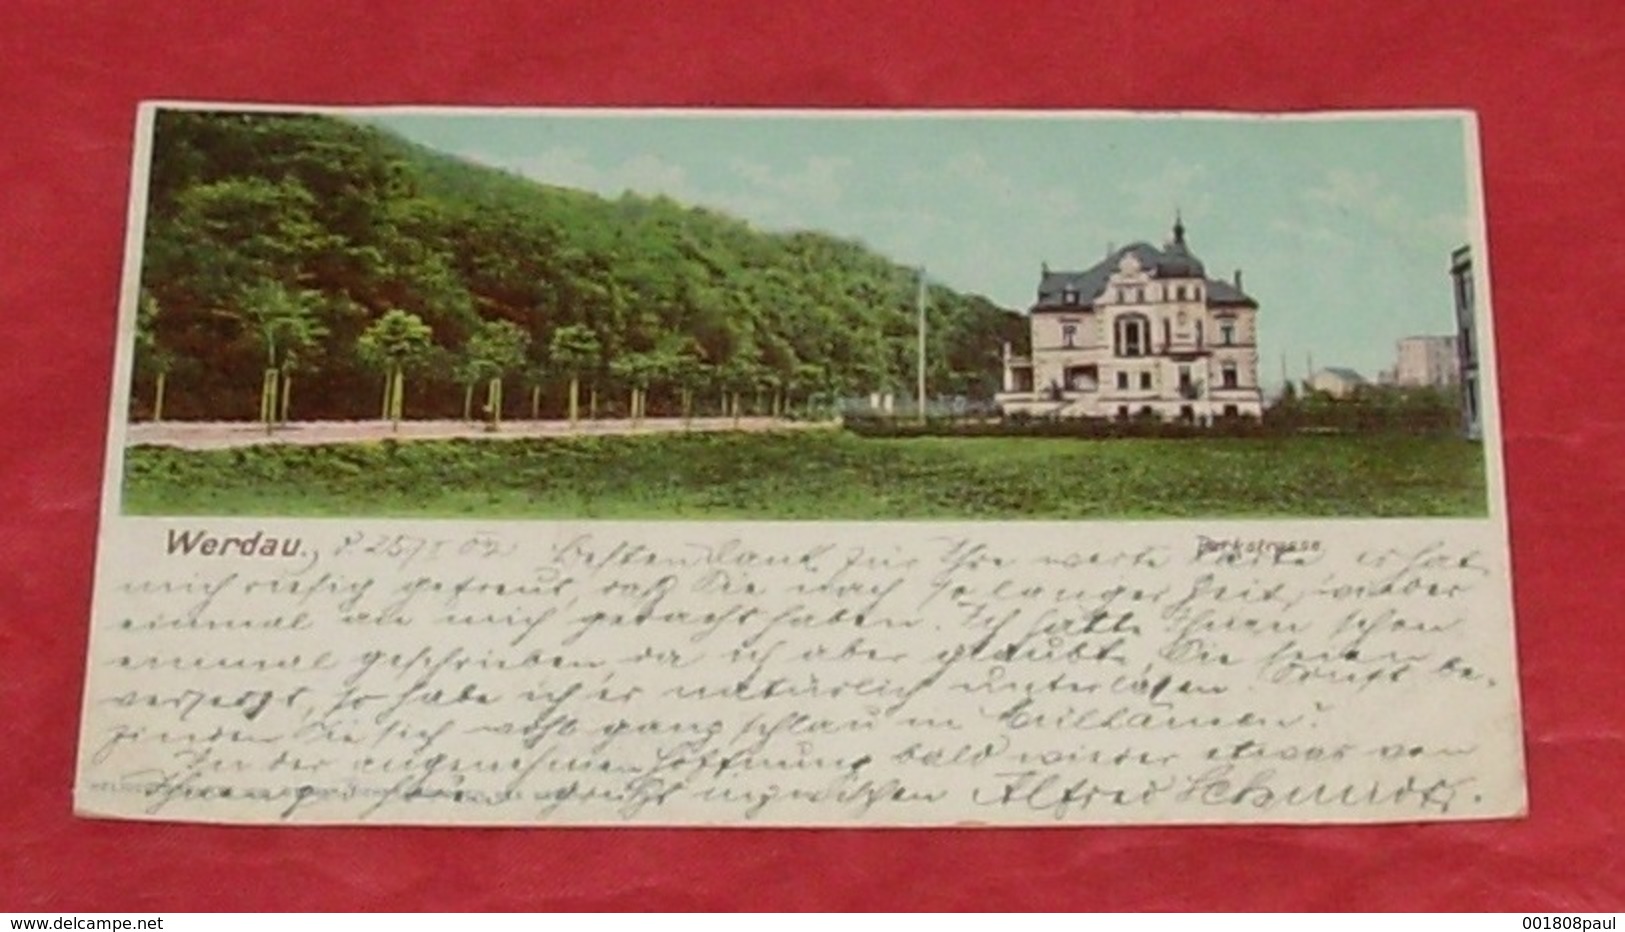 Werdau., d. 25/I 02 Besten Dank für Ihre werte Karte es hat
Parkstrasse
mich riesig gefreut, daß Sie nach so langer Zeit, wieder
einmal an mich gedacht haben. Ich hätte Ihnen schon
einmal geschrieben, da ich aber glaubte, Sie seien
versetzt, so habe ich es natürlich unterlassen. Sonst be-
finden Sie sich wohl ganz schlau in
In der angenehmen Hoffnung bald wieder etwas von
Ihnen zu hören grüßt inzwischen Alfred Schmidt.
www.delcampe.net
001808paul